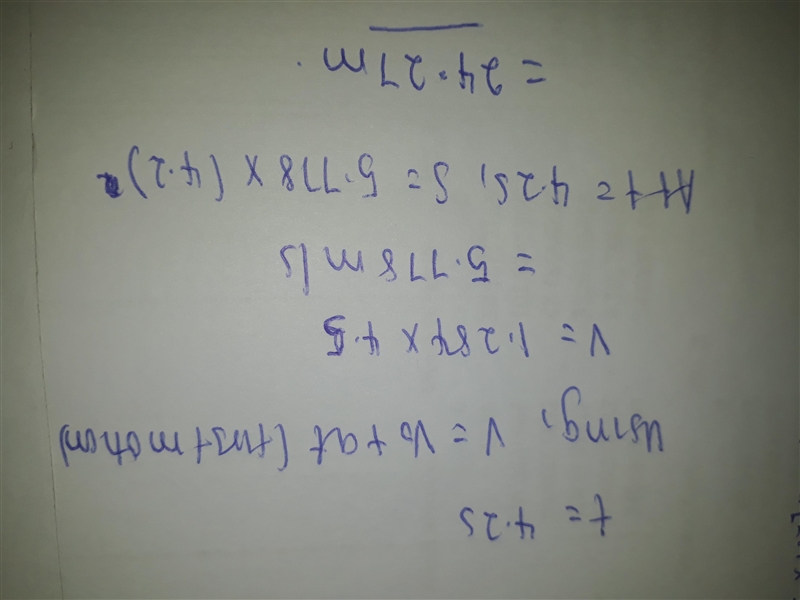 t = 4.2s
Using, V = V₀ + at (first motion)
V = 1.284 x 4.5
= 5.778 m/s
At t = 4.2s, S = 5.778 x (4.2)
= 24.27m.